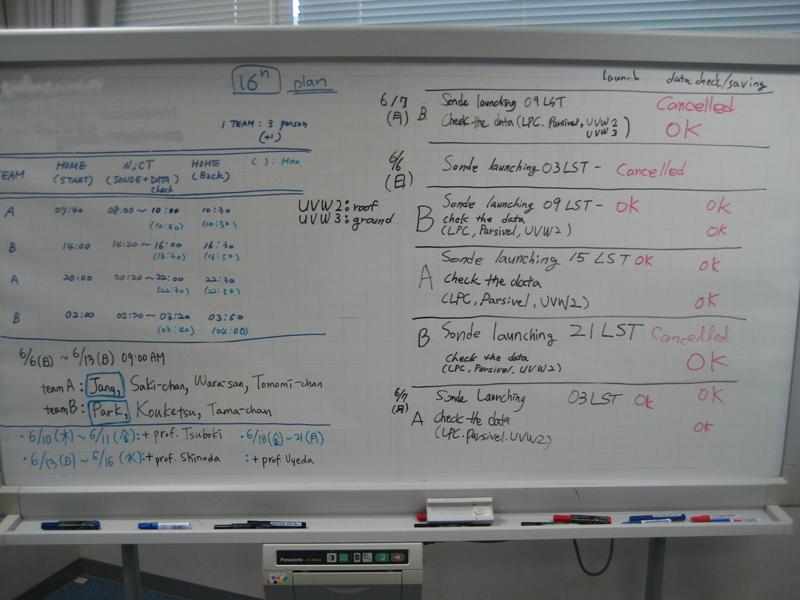 16th plan
1 TEAM : 3 person
(+1)
TEAM HOME (START) NiCT (SONDE+DATA check) HOME (Back) ( ): Max.
A 07:40 08:00 ~ 10:00 10:30
(10:30) (10:50)
B 14:00 14:20 ~ 16:00 16:30
(16:30) (16:50)
A 20:00 20:20 ~ 22:00 22:30
(22:30) (22:50)
B 02:00 02:20 ~ 03:20 03:50
(03:40) (04:00)
UVW2: roof
UVW3: ground
6/6(日) ~ 6/13(日) 09:00AM
team A: Jang, Saki-chan, Wara-san, Tomomi-chan
team B: Park, Kouketsu, Tama-chan
・6/10(木) ~ 6/11(金): + prof. Tsuboki ・6/18(金) ~ 21(月)
・6/13(日) ~ 6/16(水): + prof. Shinoda : + prof. Uyeda
launch data check/saving
6/7 (月) B Sonde launching 09LST Cancelled
Check the data (LPC. Parsivel, UVW2 UVW3) OK
6/6 (日) Sonde launching 03LST - Cancelled
B Sonde launching 09LST - OK OK
chek the data OK
(LPC, Parsivel, UVW2)
A Sonde launching 15LST OK OK
check the data
(LPC, Parsivel, UVW2) OK
B Sonde launching 21LST Cancelled
check the data OK
(LPC, Parsivel, UVW2)
6/7 (月) A Sonde Launching 03LST OK OK
check the data OK
(LPC. Parsivel. UVW2)
Panasonic